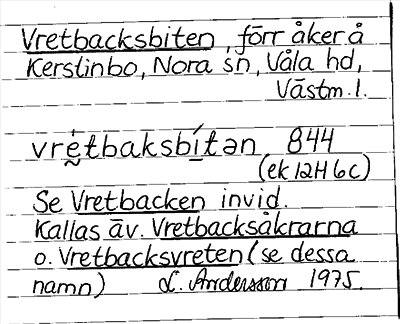 Vretbacksbiten, förr åker å
Kerstinbo, Nora sn, Våla hd,
Västm. l.
vrḛ́tbaksbí̱tən 844
(ek 12H 6c)
Se Vretbacken invid.
Kallas äv. Vretbacksåkrarna
o. Vretbacksvreten (se dessa
namn) L. Andersson 1975.